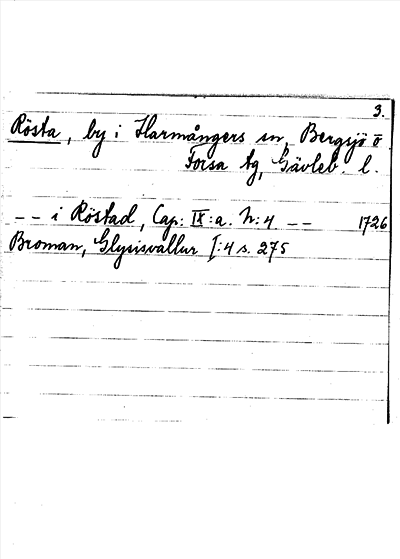 3.
Rösta, by i Harmångers sn, Bergsjö o
Forsa tg, Gävleb. l.
-- i Röstad, Cap: IX:a. N:4 -- 1726
Broman, Glysisvallur I:4 s. 275